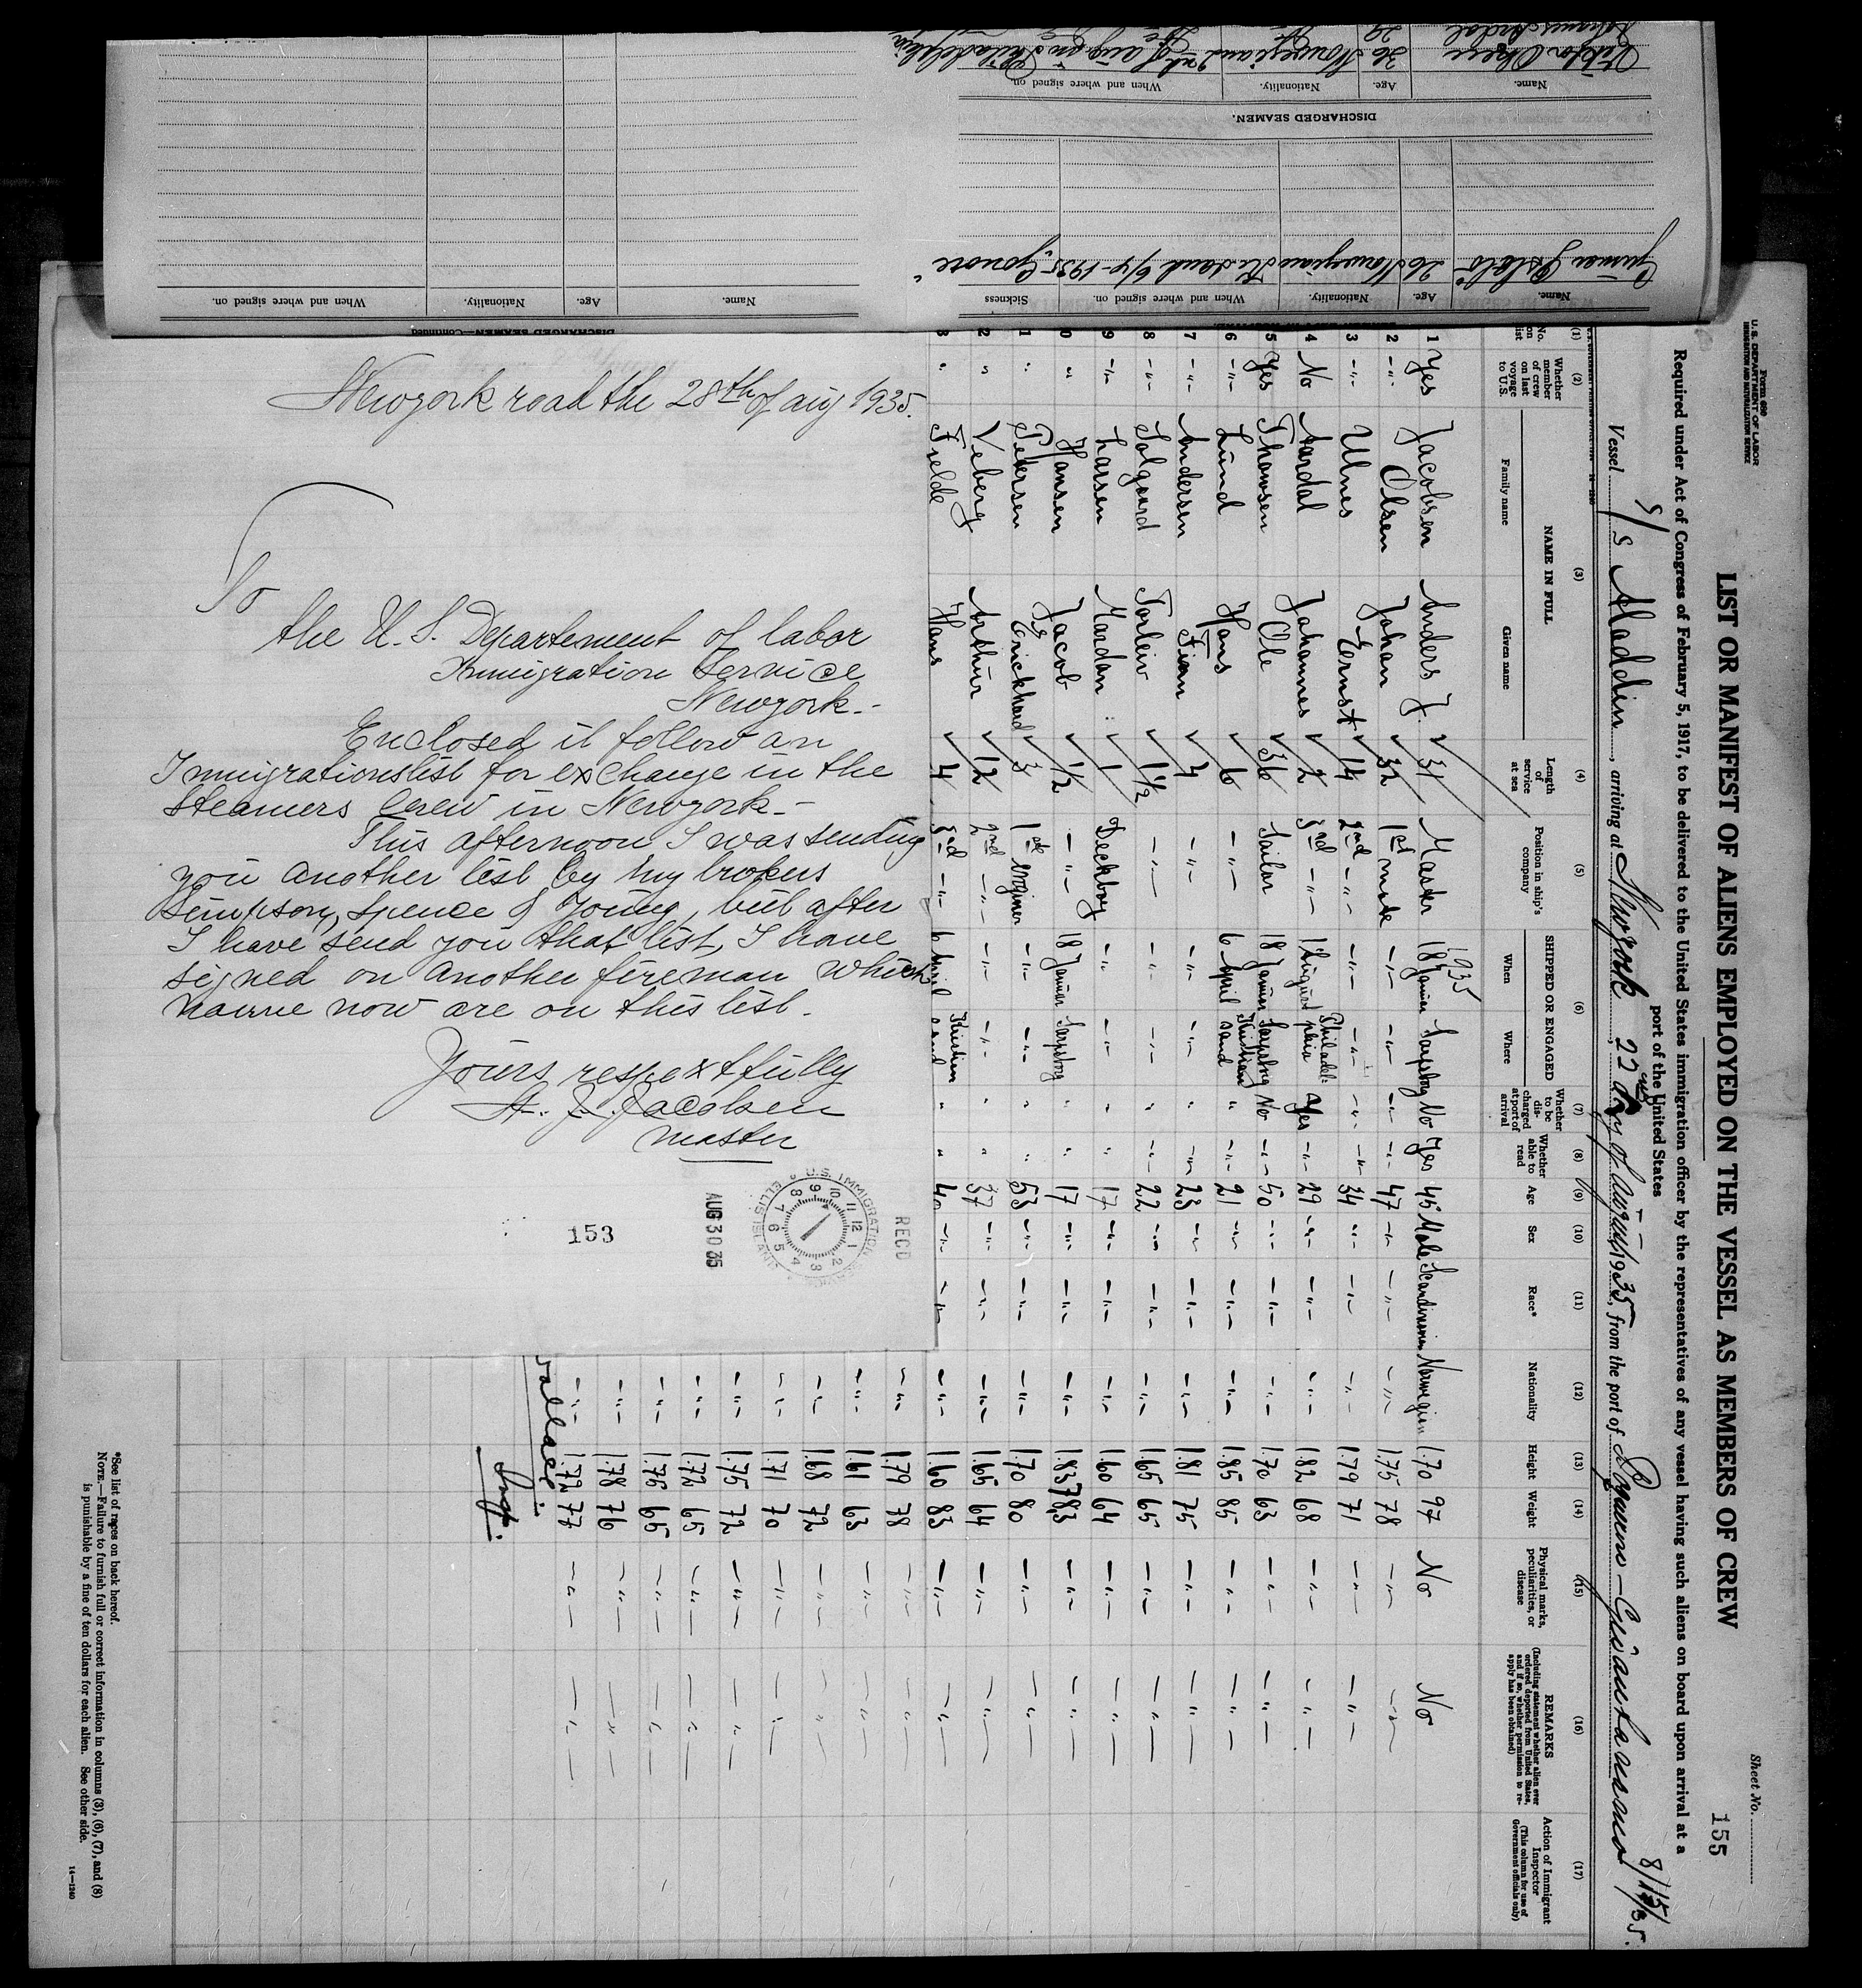 Newyork road the 28th of aug 1935.
To
the U. S. Departement of labor
Immigration Service
Newyork.-
Enclosed it follow an
Immigrationslist for exchange in the
steamers Crew in Newyork.-
This afternoon I was sending
you another list by my brokers
Simpson, Spence & Young, but after
I have send you that list, I have
signed on another fireman which
name now are on this list.
Yours respextfully
A. J. Jacobsen
master
153
AUG 30 35
U. S. IMMIGRATION SERVICE
ELLIS ISLAND
RECD
Form 689
U. S. DEPARTMENT OF LABOR
IMMIGRATION AND NATURALIZATION SERVICE
Sheet No.
155
LIST OR MANIFEST OF ALIENS EMPLOYED ON THE VESSEL AS MEMBERS OF CREW
Required under Act of Congress of February 5, 1917, to be delivered to the United States immigration officer by the representatives of any vessel having such aliens on board upon arrival at a
port of the United States
Vessel S/S Aladdin, arriving at Newyork 22 day of august 1935, from the port of Guantanamo 8/15/35.
(1) (2) (3) (4) (5) (6) (7) (8) (9) (10) (11) (12) (13) (14) (15) (16) (17)
No. on list
Whether member of crew on last voyage to U.S.
NAME IN FULL
Family name
Given name
Length of service at sea
Position in ship's company
SHIPPED OR ENGAGED
When
Where
Whether to be discharged at port of arrival
Whether able to read
Age
Sex
Race*
Nationality
Height
Weight
Physical marks, peculiarities, or disease
REMARKS
(Including statement whether alien ever ordered deported from United States, and if so, whether permission to reapply has been obtained)
Action of Immigrant Inspector
(This column for use of Government officials only)
1935
1 Yes Jacobsen Anders J. 31 Master 18 Januar Sarpsborg No Yes 45 Male Scandinavian Norwegian 1.70 97 No No
2 -"- Olsen Johan 32 1st mate -"- -"- -"- -"- 47 -"- -"- -"- 1.75 78 -"- -"-
3 -"- Ulnes Ernst 14 2nd -"- -"- -"- -"- -"- 34 -"- -"- -"- 1.79 71 -"- -"-
4 No Aardal Johannes 2 3rd -"- 1 August Philadelphia Yes -"- 29 -"- -"- -"- 1.82 68 -"- -"-
5 Yes Thomsen Ole 36 Sailor 18 Januar Sarpsborg No -"- 50 -"- -"- -"- 1.70 63 -"- -"-
6 -"- Lund Hans 6 -"- 6 April Kristiansand " -"- 21 -"- -"- -"- 1.85 85 -"- -"-
7 -"- Andersen Finn 4 -"- -"- -"- " -"- 23 -"- -"- -"- 1.81 75 -"- -"-
8 -"- Solgaard Torleiv 1 1/2 -"- -"- -"- " -"- 22 -"- -"- -"- 1.65 65 -"- -"-
9 -"- Larsen Mardan 1 Deckboy -"- -"- " " 17 -"- -"- -"- 1.60 64 -"- -"-
0 " Hansen Jacob 1/2 -"- 18 Januar Sarpsborg " " 17 -"- -"- -"- 1.83 78,3 -"- -"-
1 " Petersen Erickhard 3 1st Enginer -"- -"- " " 53 -"- -"- -"- 1.70 80 -"- -"-
2 " Veberg Arthur 12 2nd -"- -"- -"- " " 37 -"- -"- -"- 1.65 64 -"- -"-
3 " Fjelde Hans 4 3rd -"- 6 April Kristiansand " " 40 -"- -"- -"- 1.60 83 -"- -"-
-"- 1.79 78 -"- -"-
-"- 1.61 63 -"- -"-
-"- 1.68 72 -"- -"-
-"- 1.71 70 -"- -"-
-"- 1.75 72 -"- -"-
-"- 1.72 65 -"- -"-
-"- 1.75 65 -"- -"-
-"- 1.78 76 -"- -"-
-"- 1.72 77 -"- -"-
Insp.
*See list of races on back hereof.
NOTE.—Failure to furnish full or correct information in columns (3), (6), (7), and (8)
is punishable by a fine of ten dollars for each alien. See other side.
14—1240
DISCHARGED SEAMEN—Continued
Name. Age. Nationality. When and where signed on.
Name. Age. Nationality. When and where signed on. Sickness
26 Norwegian 6/4-1935
DISCHARGED SEAMEN.
Name. Age. Nationality. When and where signed on.
36 Norwegian 2nd of aug Philadelphia
29